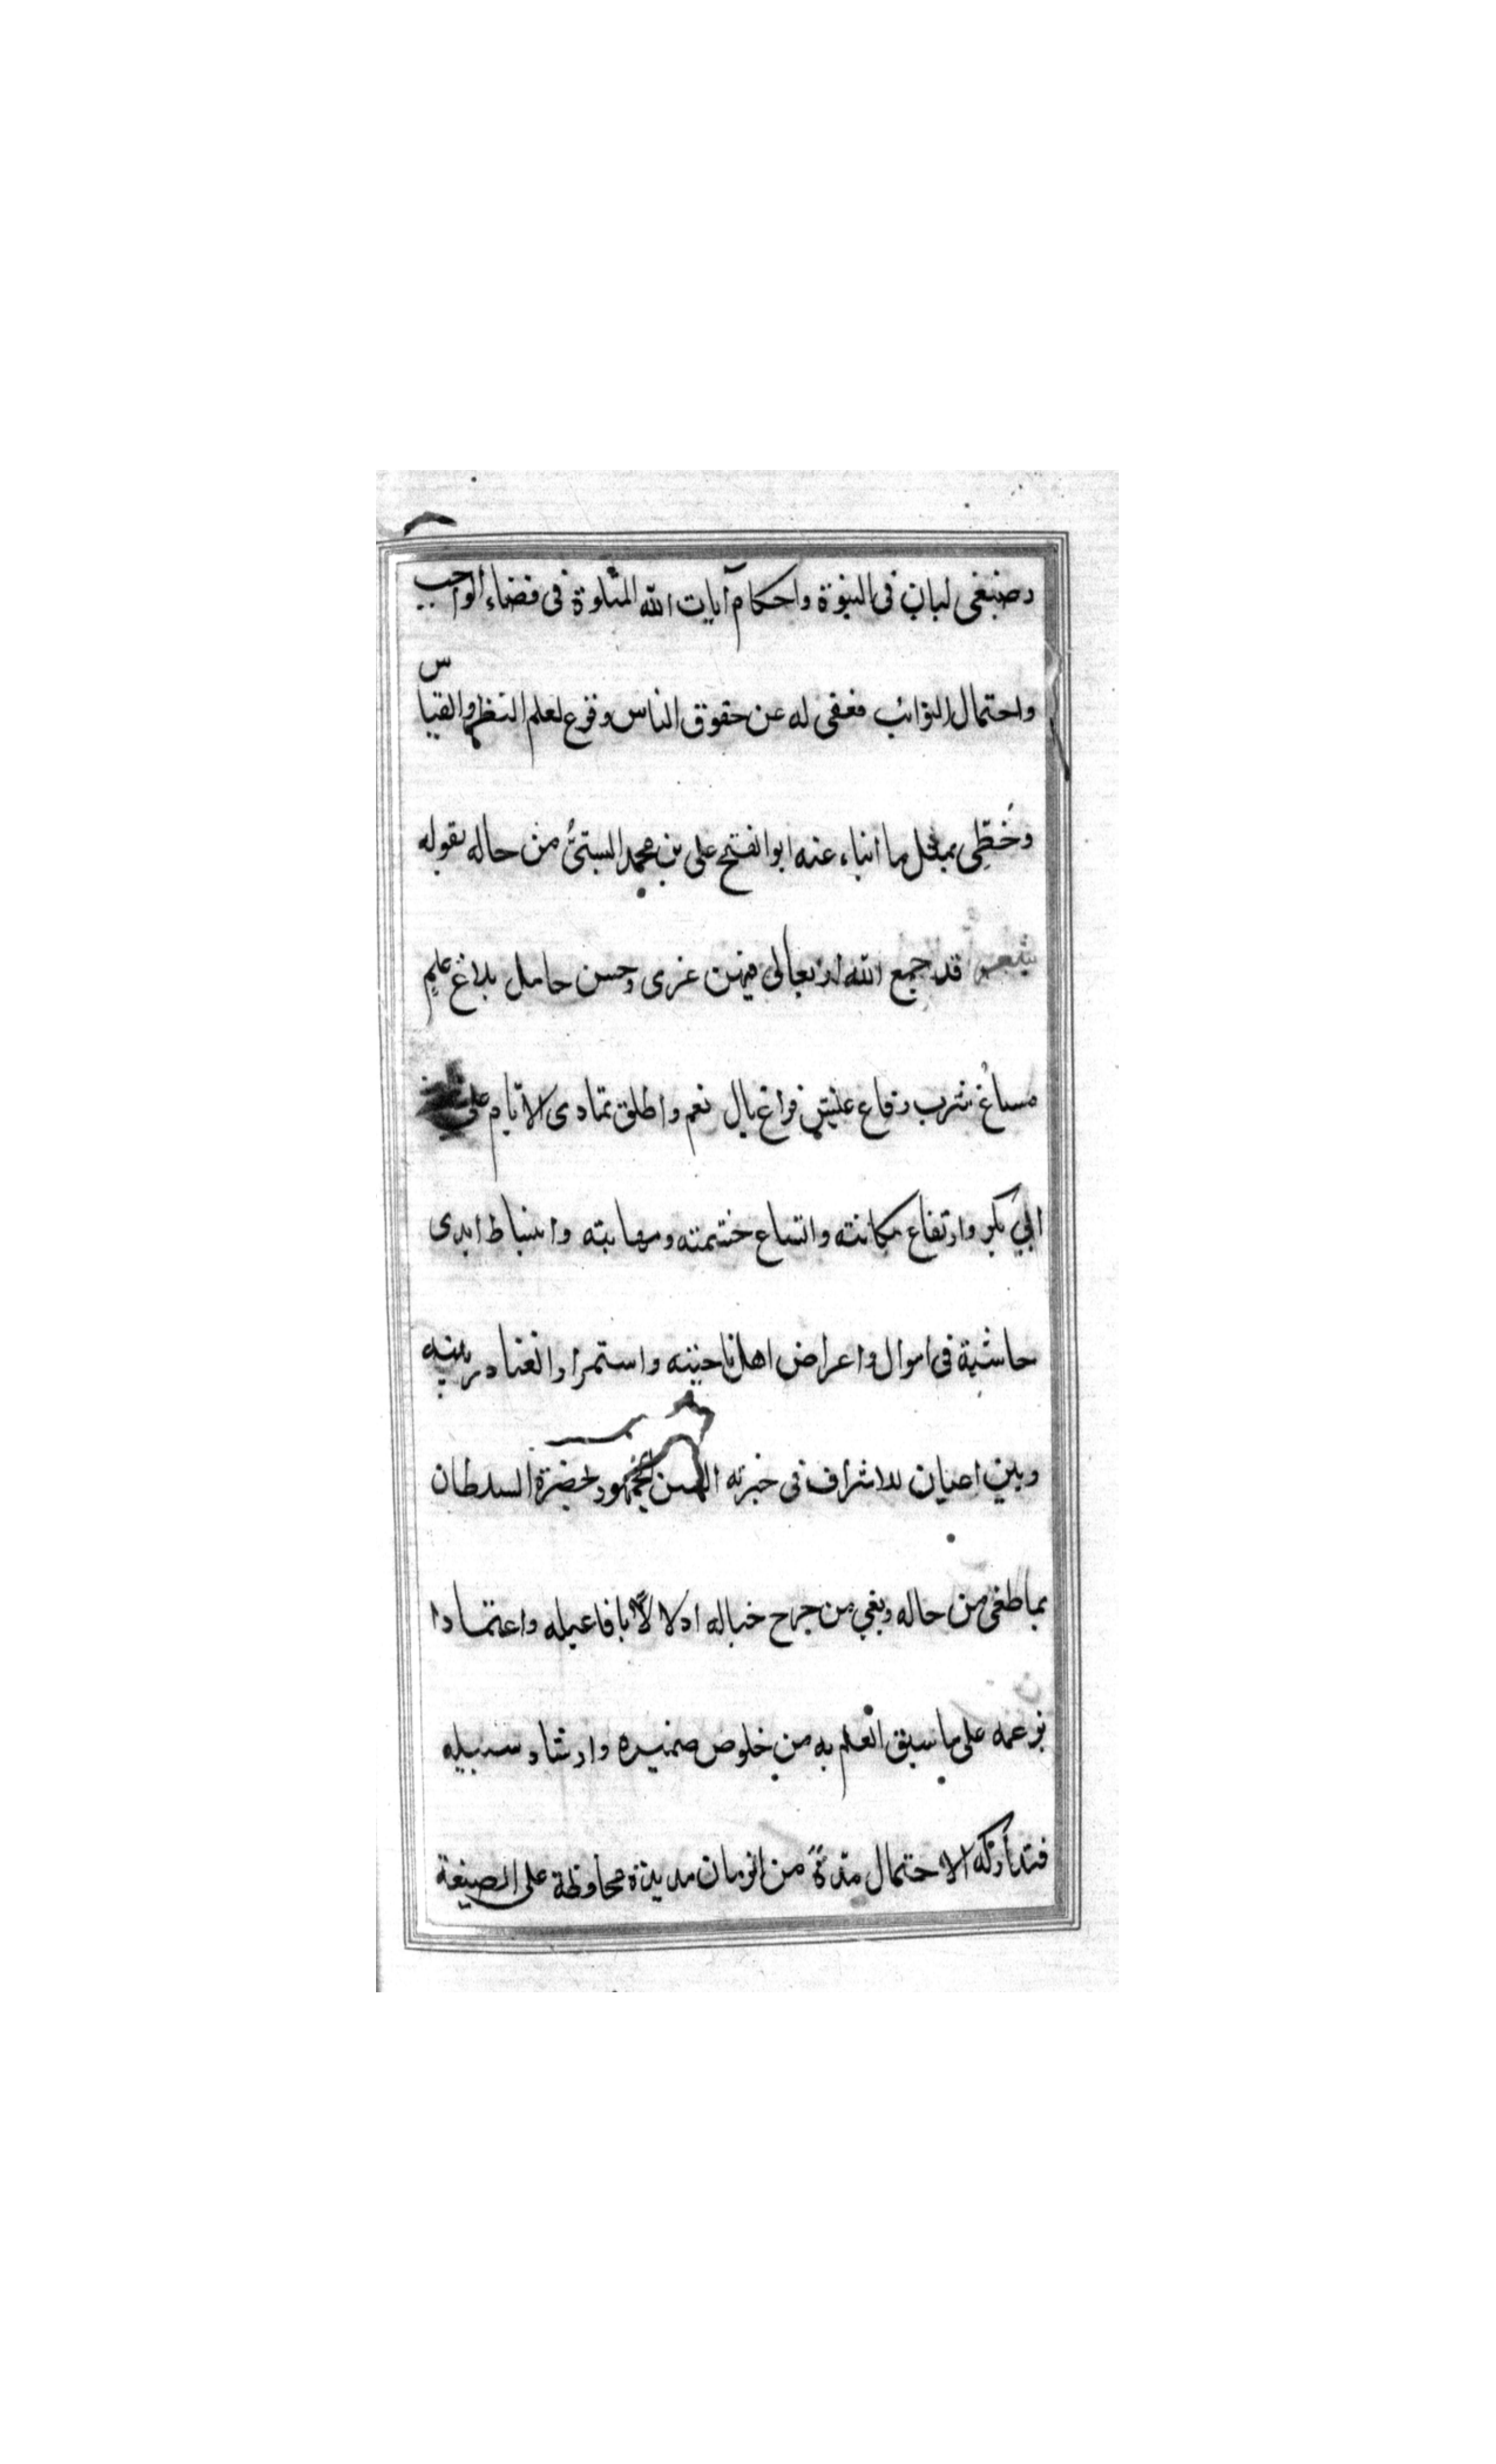 رضيعى لبان فى النبوة واحكام آيات الله المتلوة فى قضاء الواجب
واحتمال النوائب فعفى له عن حقوق الناس وفرغ لعلم النظر والقياس
وخُطِّى بمثل ما انباء عنه ابو الفتح على بن محمد البستىُّ من حاله بقوله
شعر قد جمع الله ار بعالى فيهن عزى وحسن حامل بلاغ علم
مساغُ شرب رفاع عيش فراغ بال نعم واطلق تمادى الايام على
ابي بكر وارتفاع مكانته واتساع حشمته ومهابته وانبساط ايدى
حاشية فى اموال واعراض اهل ناحيته واستمرار العناد بينه
وبين اعيان للاشراف فى خبرته لحضرة السلطان
بما طغى من حاله وبغي من جرح خباله ادلالاً بافاعيله واعتمادا
بزعمه على ما سبق العلم به من خلوص ضميره وارشاد سبيله
فتداركه الاحتمال مدةً من الزمان مديدة محافظة على الصنيعة